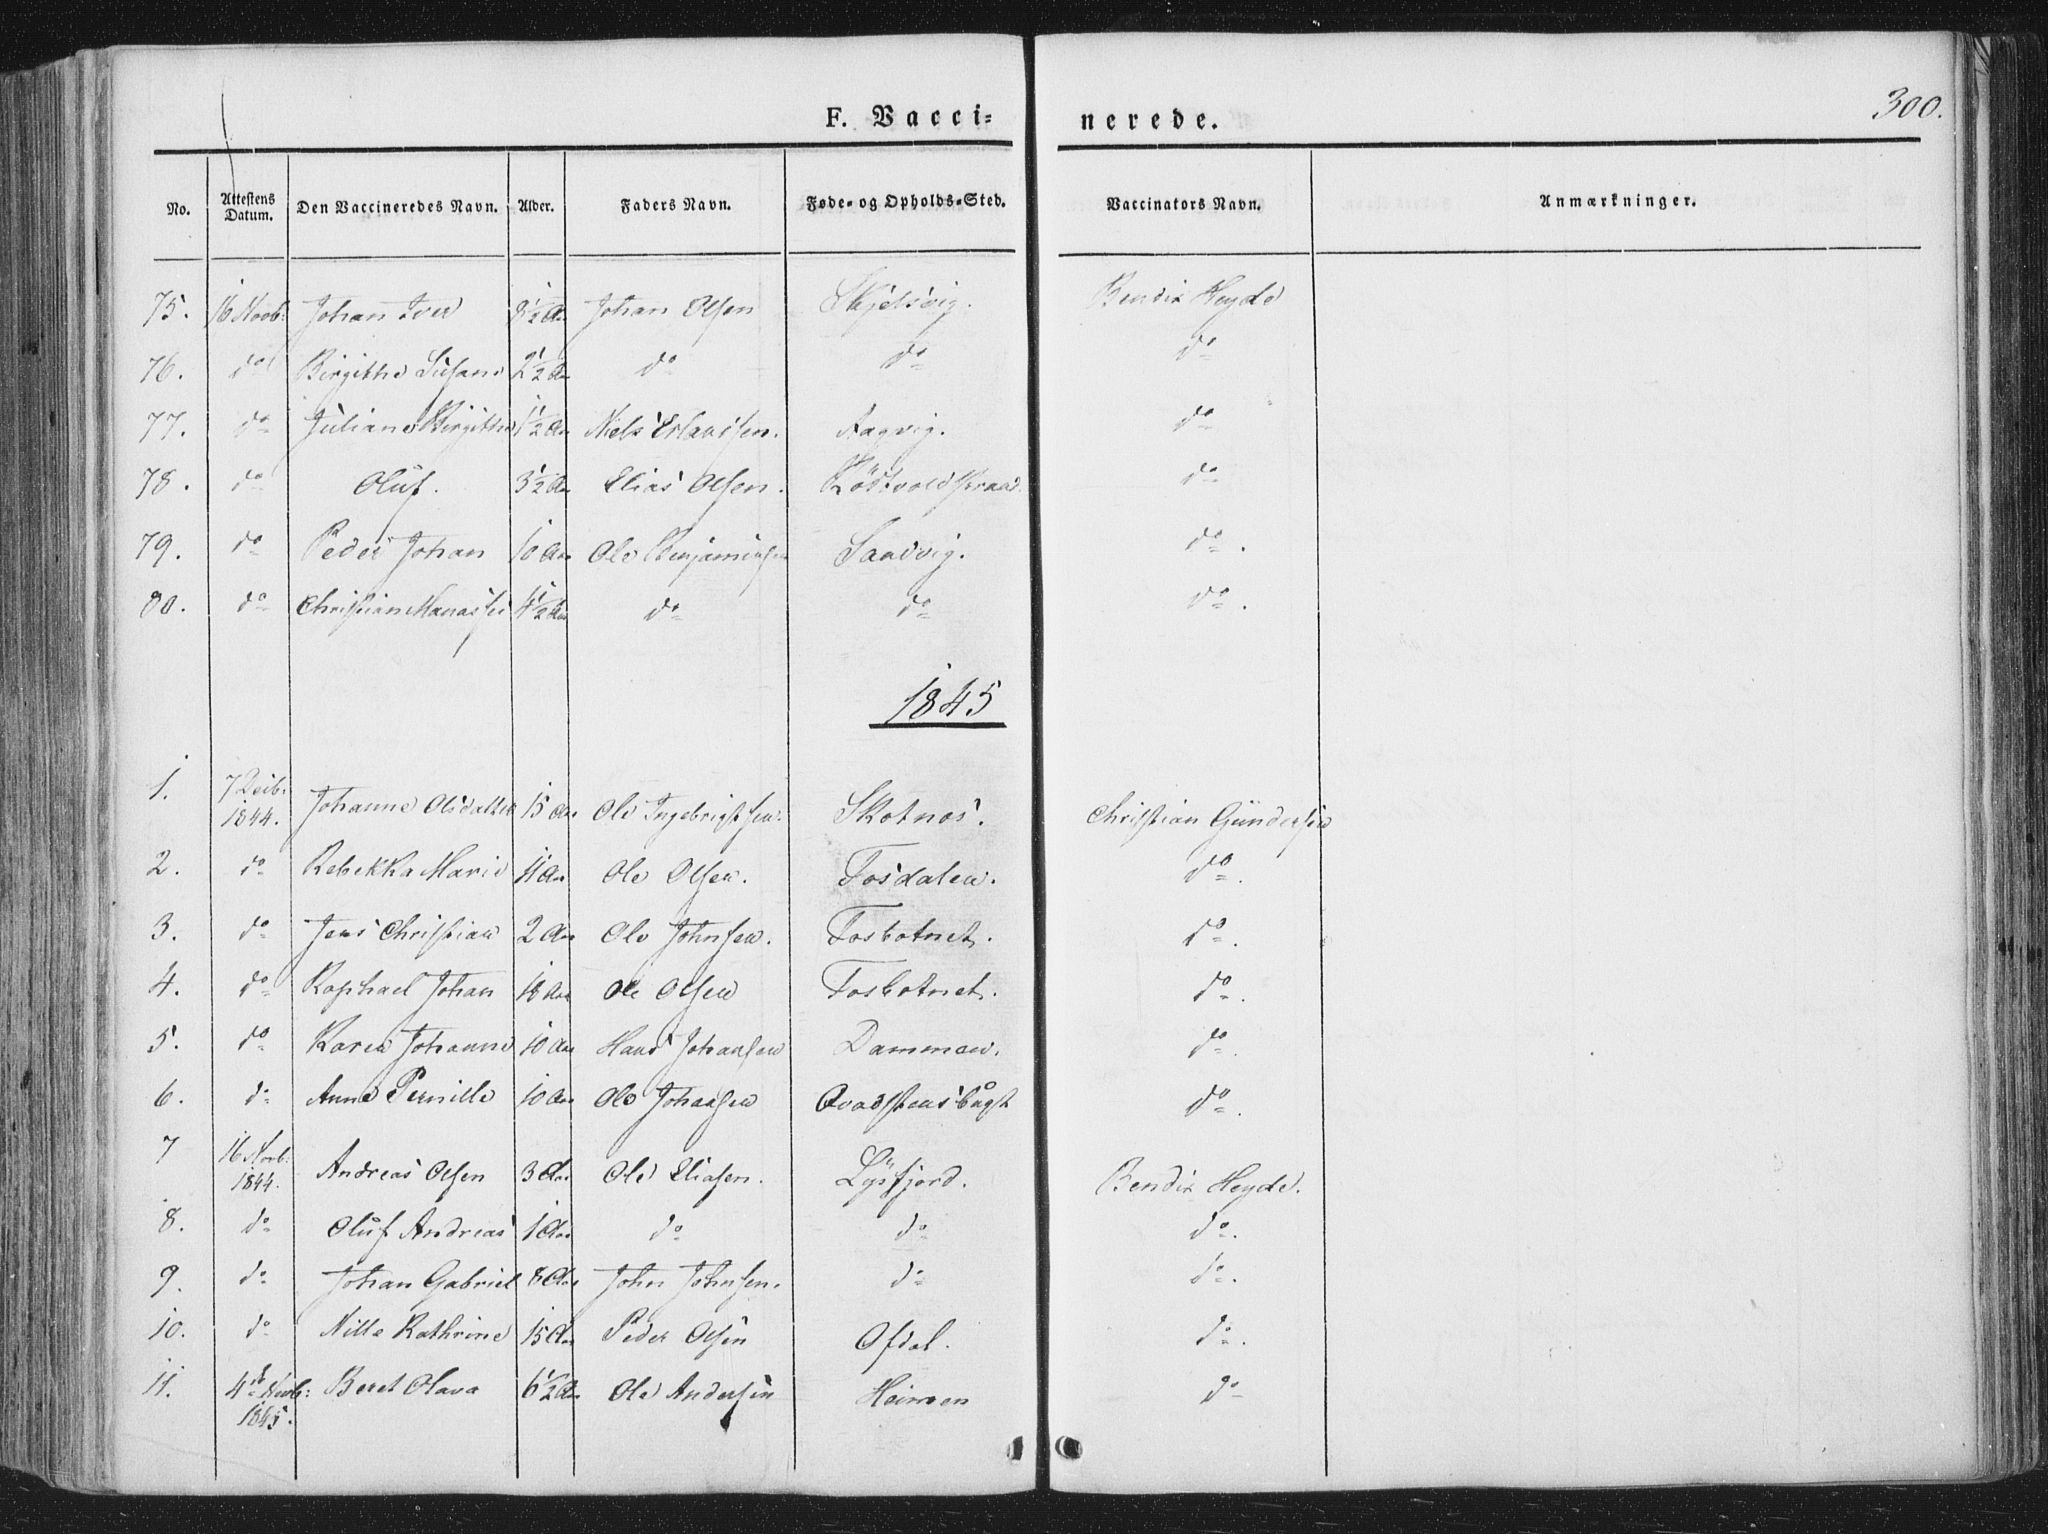 300.
F. Vacci= nerede.
No. Attestens Datum. Den Vaccineredes Navn. Alder. Faders Navn. Føde= og Opholds=Sted. Vaccinators Navn. Anmærkninger.
75. 16 Novb: Johan Iver 8½ Aar Johan Olsen Skjelsvig. Bendix Heyde
76. do Birgithe Susane 2½ Aar do do do
77. do Juliane Birgithe 1½ Aar Niels Erlandsen. Aagvig. do
78. do Oluf. 3½ Aar Elias Olsen. do
79. do Peder Johan 10 Aar Ole Benjaminsen Sandvig. do.
80. do Christian Manasse 4½ Aar do do do.
1845
1. 7 Decb: 1844. Johanne Olsdatter 15 Aar Ole Ingebrigtsen. Skotnes. Christian Gundersen
2. do Rebekka Marie 11 Aar Ole Olsen. Fosdalen. do.
3. do Jens Christian 2 Aar Ole Johnsen. Fosbotnet. do.
4. do Raphael Johan 18 Aar Ole Olsen Fosbotnet. do.
5. do Karen Johanne 10 Aar Hans Johansen Dammen. do.
6. do Anne Pernille 10 Aar Ole Johansen Qvadstensbugt do.
7 16 Novb: 1844. Andreas Olsen 3 Aar Ole Eliasen. Lysfjord. Bendix Heyde.
8. do Oluf Andreas 1 Aar do do do.
9. do Johan Gabriel 8 Aar John Johnsen. do do.
10. do Nille Kathrine 15 Aar Peder Olsen Ofdal. do.
11. 4de 1845. Beret Olava 6½ Aar Ole Andersen Heimen do